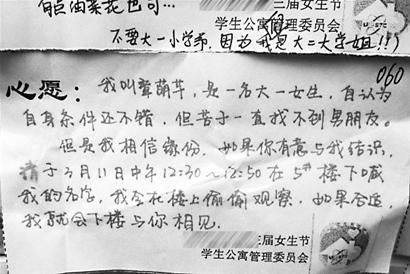 三届女生节
不要大一小学弟,因为 是大二大学姐!!)
学生公寓管理委员会
060
心愿:我叫 萌芊,是一名大一女生,自认为
自身条件还不错,但苦于一直找不到男朋友。
但是我相信缘份,如果你有意与我结识,
请于3月11日中午12:30~12:50在5#楼下喊
我的名字,我会在楼上偷偷观察,如果合适,
我就会下楼与你相见.
三届女生节
学生公寓管理委员会